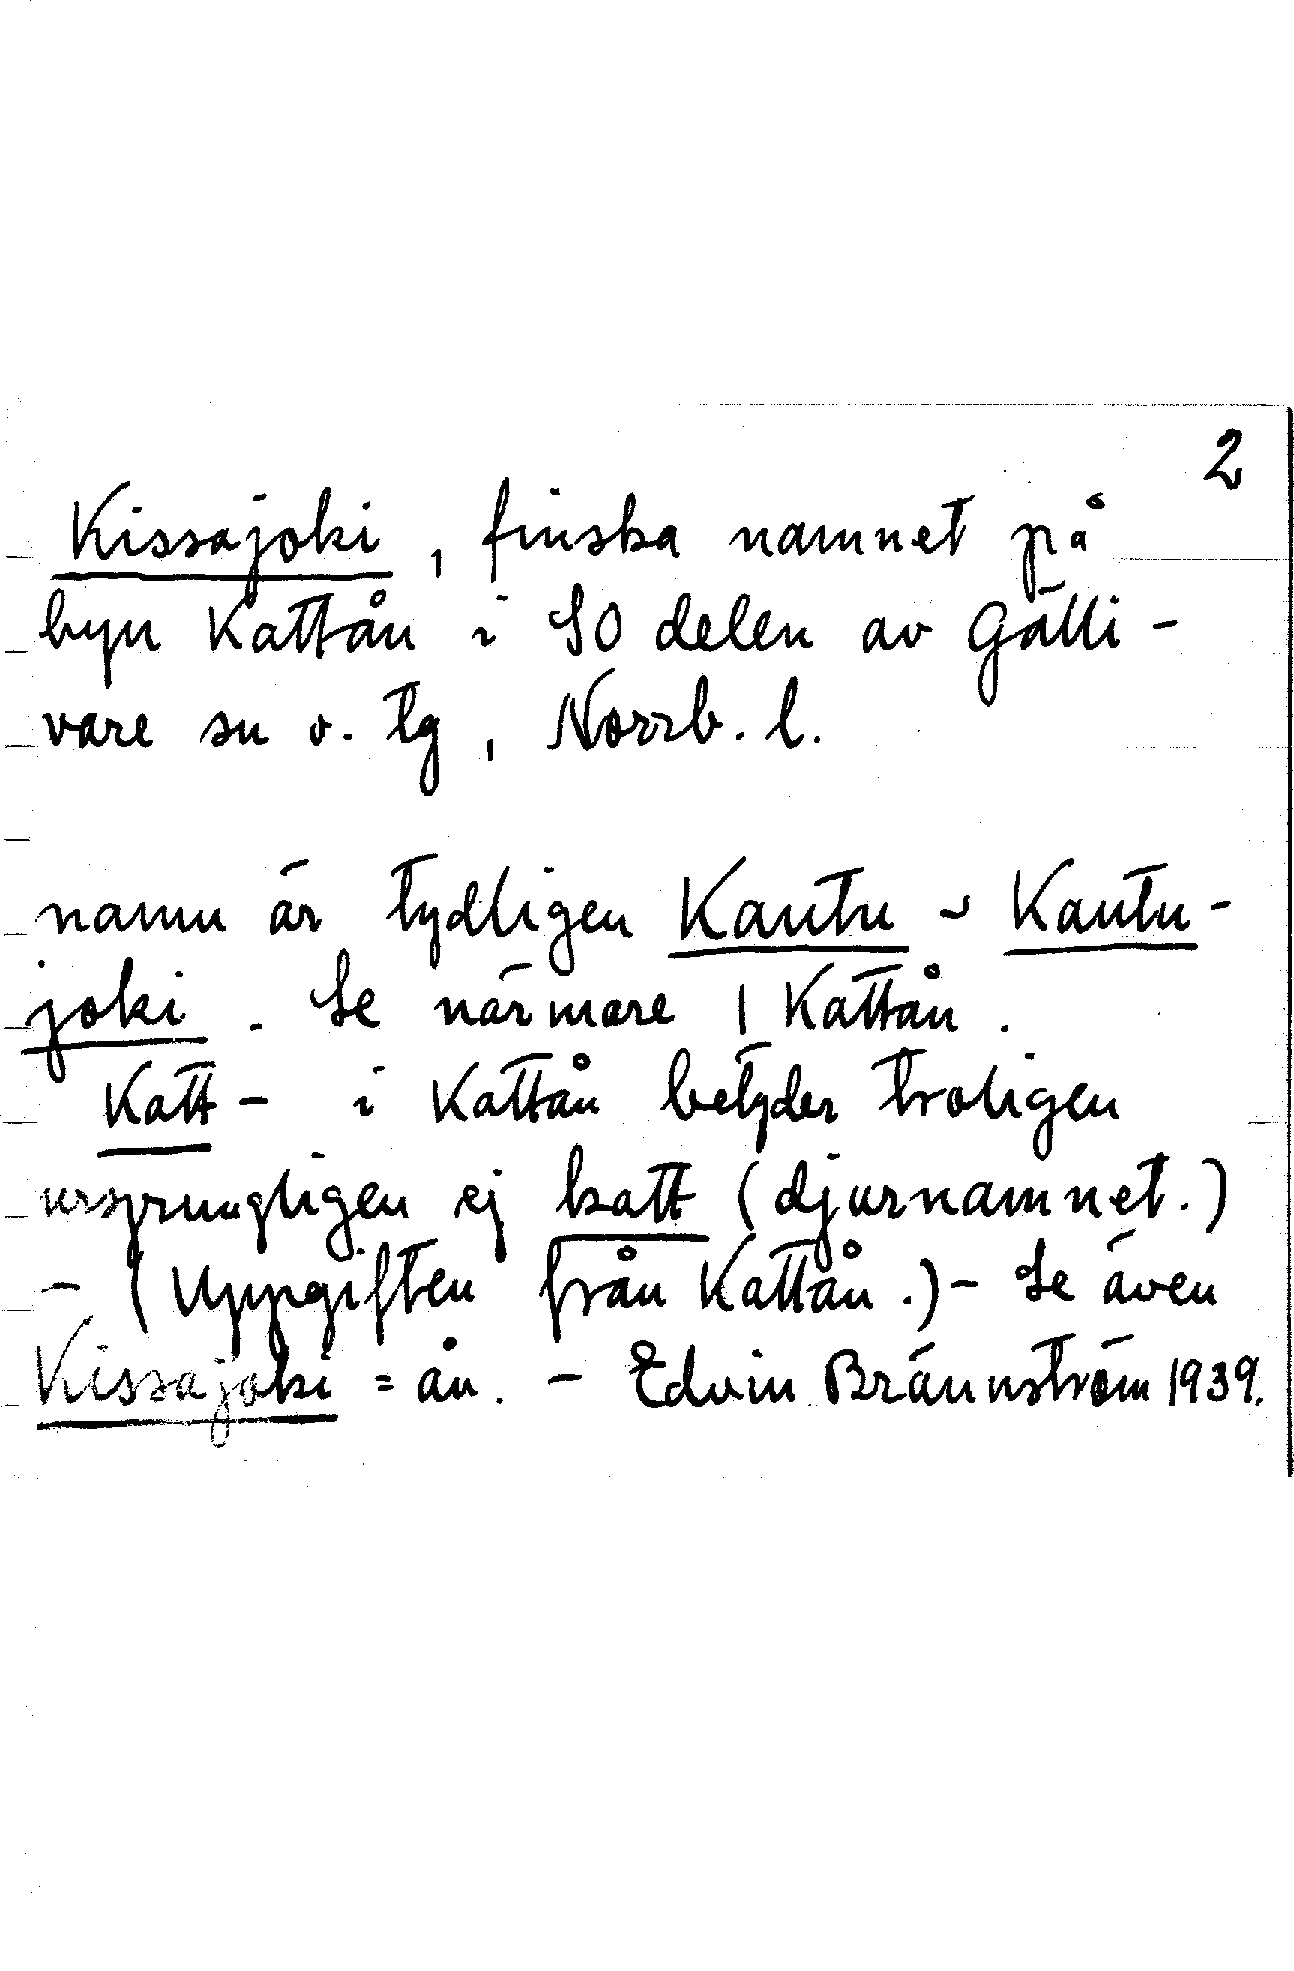 2
Kissajoki, finska namnet på
byn Kattån i SO delen av Gälli-
vare sn o. tg, Norrb. l.
namn är tydligen Kantu - Kantu-
joki. Se närmare 1 Kattån.
Katt- i Kattån betyder troligen
ursprungligen ej katt (djurnamnet.)
- (Uppgiften från Kattån.) - Se även
Kissajoki = ån. - Edvin Brännström 1939.